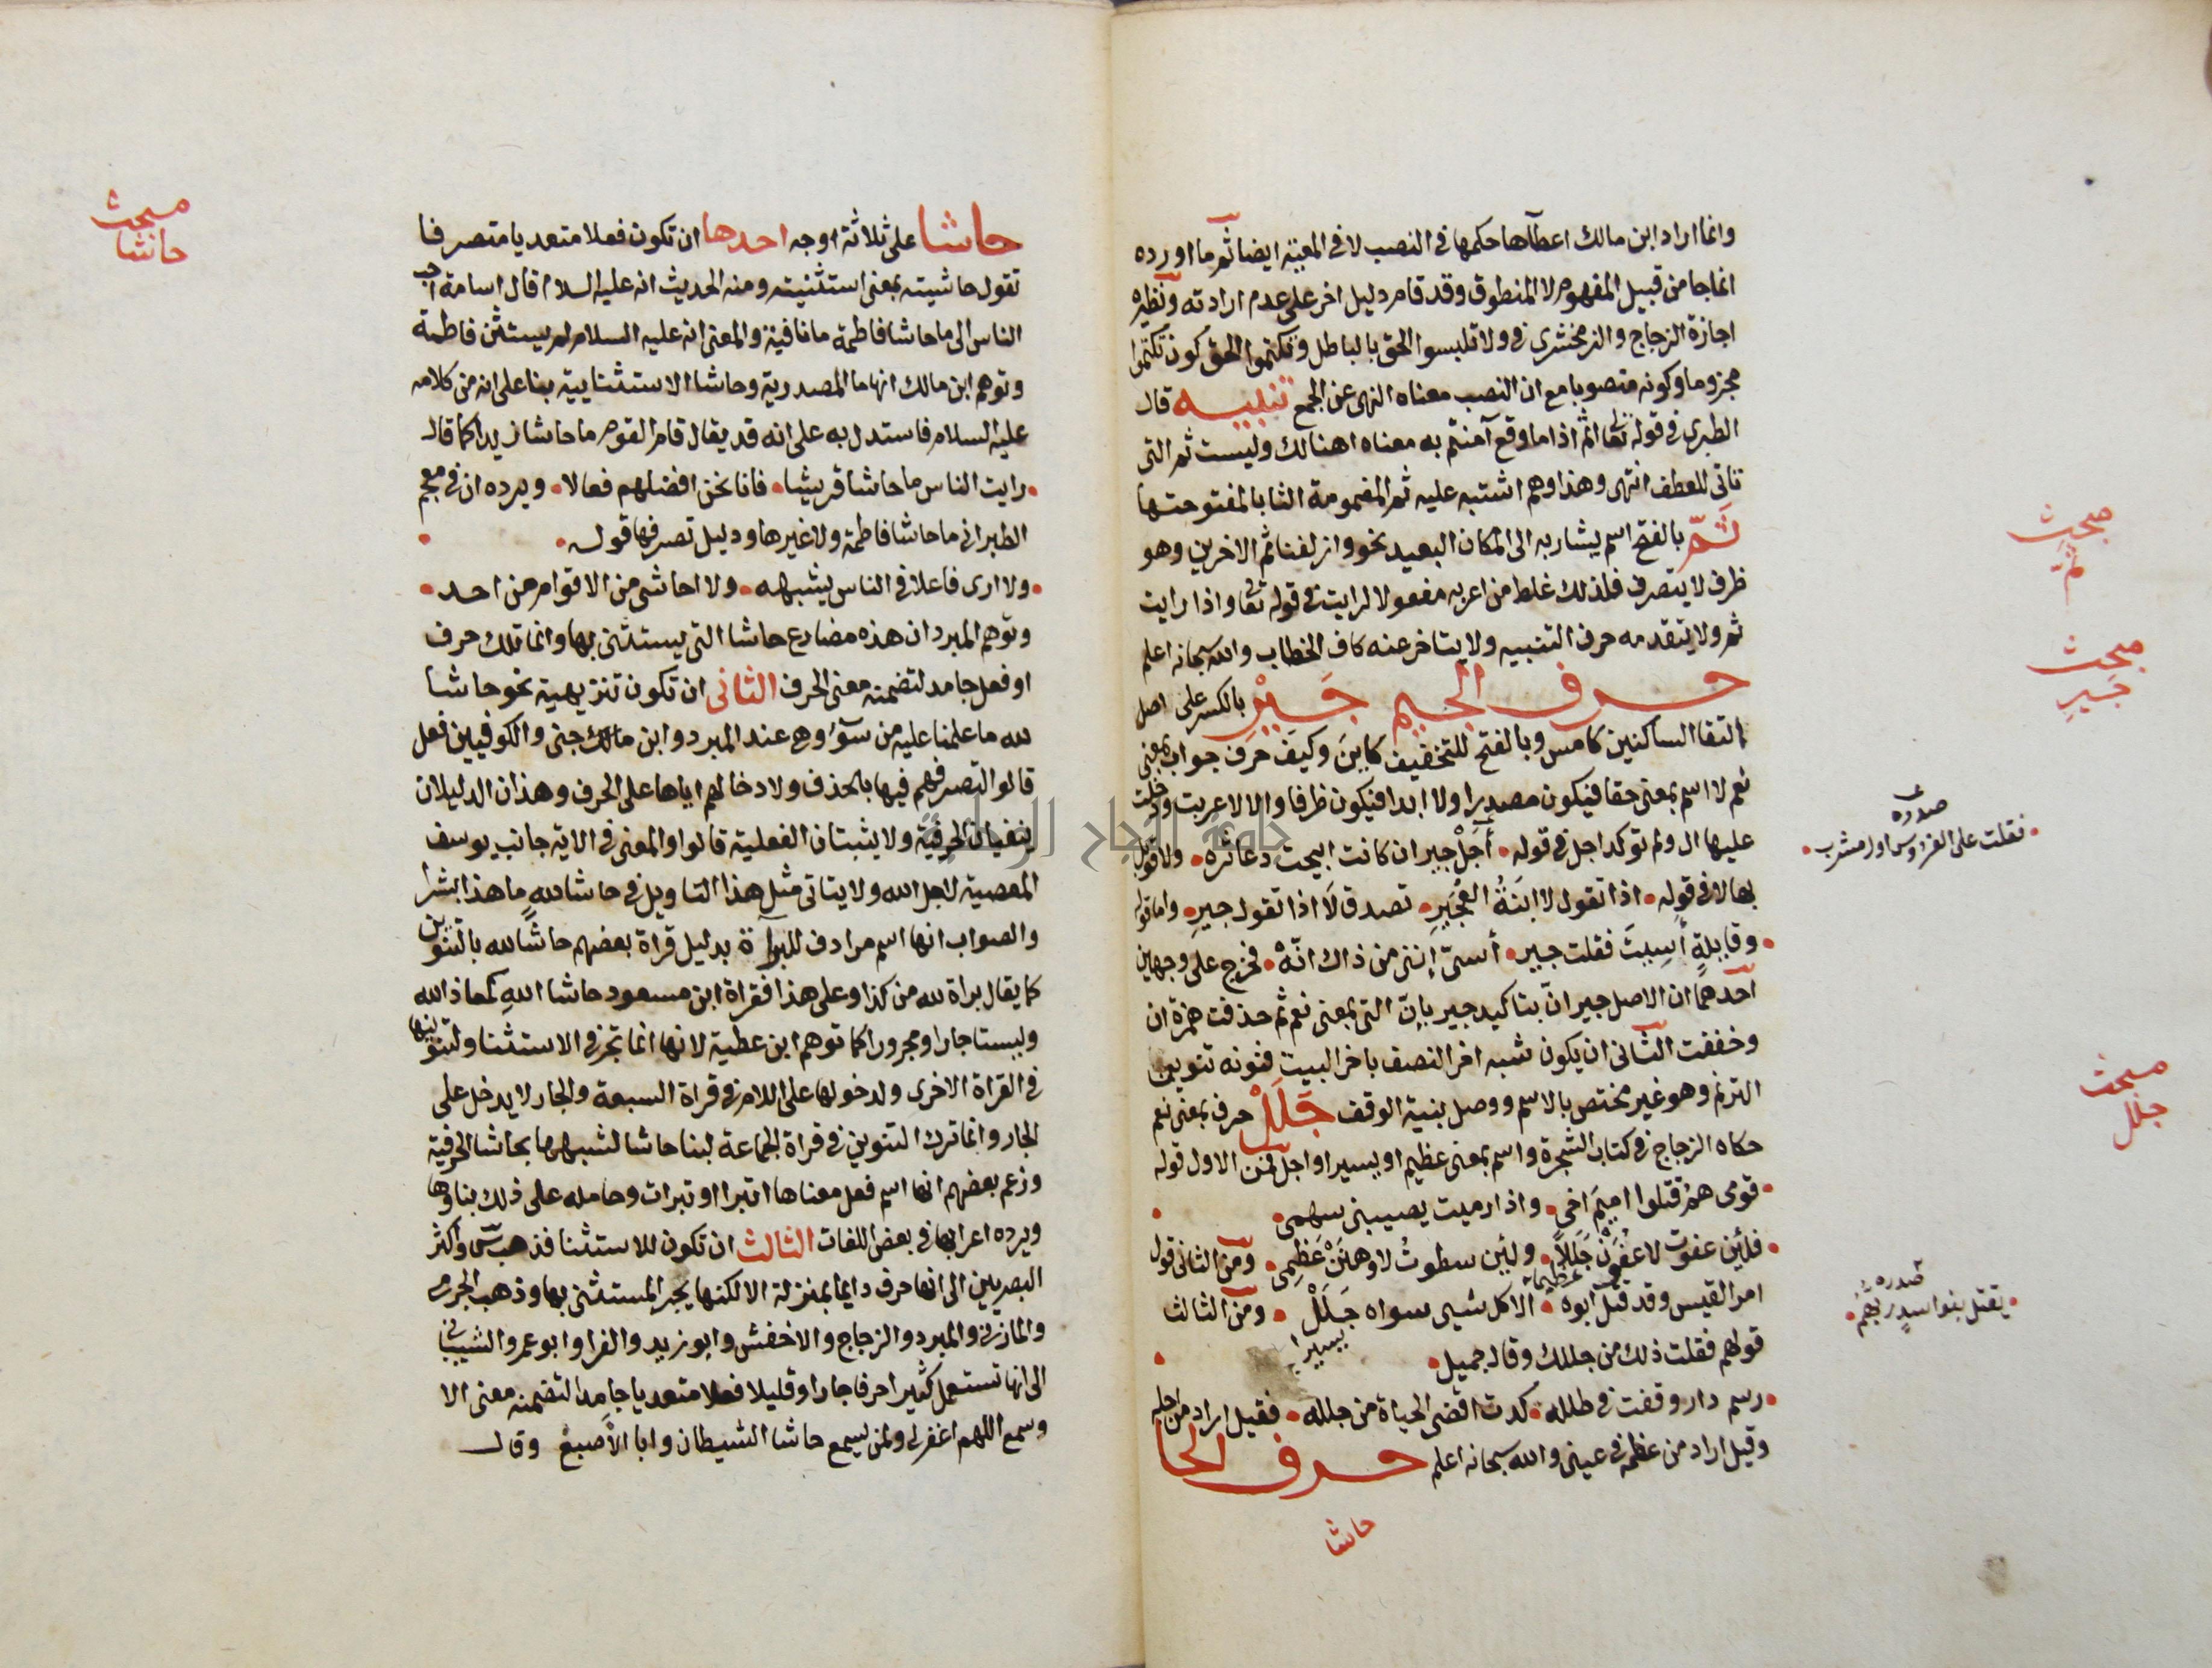 وانما اراد ابن مالك اعطآءها حكمها في النصب لا في المعية ايضا ثم ما اورده
انما جا من قبيل المفهوم لا المنطوق وقد قام دليل اخر على عدم ارادته ونظيره
اجازة الزجاج والزمخشري في ولا تلبسوا الحق بالباطل وتكتموا الحق كون تكتموا
مجزوما وكونه منصوبا مع ان النصب معناه النهى عن الجمع تنبيـه قال
الطبري في قوله تعا اثم اذا ما وقع آمنتم به معناه اهنالك وليست ثم التى
تاتى للعطف انتهى وهذا وهم اشتبه عليه ثم المضمومة الثا بالمفتوحتها
ثَـمّ بالفتح اسم يشار به الى المكان البعيد نحو وازلفنا ثم الاخرين وهو
ظرف لا يتصرف فلذلك غلط من اعربه مفعولا لرايت في قوله تعا واذا رايت
ثم ولا يتقدمه حرف التنبيه ولا يتاخر عنه كاف الخطاب والله سبحانه اعلم
حـرف الجيم جَـيْرِ بالكسر على اصل
التقا الساكنين كامس وبالفتح للتخفيف كاينَ وكيفَ حرف جواب بمعنى
نعم لا اسم بمعنى حقا فيكون مصدرا ولا ابدا فيكون ظرفا والا لاعربت ودخلت
عليها ال ولم توكد اجل في قوله • أَجَلْ جير ان كانت ابيحت دعاثره • ولا قوبل
بها لا في قوله • اذا تقول لا ابنَةُ العُجَيرِ • تصدق لَا اذا تقول جيرِ • واما قوله
• وقايلةٍ أسِيتَ فقلت جيرٍ • أسىّ إننى من ذاك انّهْ • فخرج على وجهين
احدهما ان الاصل جير انّ بتاكيد جير بانّ التى بمعنى نعم ثم حذفت همزة ان
وخففت الثانى ان يكون شبه اخر النصف باخر البيت فنونه تنوين
الترنم وهو غير مختص بالاسم ووصل بنية الوقف جَلَلْ حرف بمعنى نعم
حكاه الزجاج في كتاب الشجرة واسم بمعنى عظيم او يسير او اجل فمن الاول قوله
• قومى همُ قتلوا اميمَ اخى • واذا رميت يصيبنى سهمى •
• فلئن عفوت لاعفُوَنْ جَلَلاً • ولئِن سطوتُ لاوهنَنْ عَظِمى • ومن الثانى قول
عظيما
امر القيس وقد قتل ابوه • الا كل شيى سواه جَلَلْ • ومن الثالث
يسيرا
قولهم فقلت ذلك من جللك وقال جميل •
• رسم دار وقفت في طلله • كدت اقضى الحياة من جلله • فقيل اراد من اجله
وقيل اراد من عظمه في عينى والله سبحانه اعلم حـرف الحا
حاشا
مبحث
ثَمّ
مبحث
جَيرِ
صدره
• نقلت على الفردوس اول مشرب •
مبحث
جلل
صدره
• يقتل بنوا اسدٍ ربهُم •
حاشا على ثلاثة اوجه احدها ان تكون فعلا متعديا متصرفا
تقول حاشيته بمعنى استثنيته ومنه الحديث انه عليه السلام قال اسامة احب
الناس الى ما حاشا فاطمة ما نافية والمعنى انه عليه السلام لم يستثن فاطمة
وتوهم ابن مالك انها ما المصدرية وحاشا الاستثنايية بنا على انه من كلامه
عليه السلام فاستدل به على انه قد يقال قام القوم ما حاشا زيدا كما قال
• رايت الناس ما حاشا قريشا • فانا نحن افضلهم فعالا • ويرده ان في معجم
الطبرانى ما حاشا فاطمة ولا غيرها ودليل تصرفها قولـه •
• ولا ارى فاعلا في الناس يشبهه • ولا احاشى من الاقوام من احد •
وتوهم المبرد ان هذه مضارع حاشا التى يستثنى بها وانما تلك حرف
او فعل جامد لتضمنه معنى الحرف الثانى ان تكون تنزيهية نحو حاشا
لله ما علمنا عليه من سوٓء وهى عند المبرد وابن جنى والكوفيين فعل
قالوا لتصرفهم فيها بالحذف ولادخالهم اياها على الحرف وهذان الدليلان
ينفيان الحرفية ولا يثبتان الفعلية قالوا والمعنى في الاية جانب يوسف
المعصية لاجل الله ولا يتاتى مثل هذا التاويل في حاشا للهِ ما هذا بشرا
والصواب انها اسم مرادف للبراة بدليل قراة بعضهم حاشًا لله بالتنوين
كما يقال براة لله من كذا وعلى هذا فقراة ابن مسعود حاشا اللهِ كمعاذ الله
وليستا جارا ومجرورا كما توهم ابن عطية لانها انما تجر في الاستثنا ولتنوينها
في القراة الاخرى ولدخولها على اللام في قراة السبعة والجار لا يدخل على
الجار وانما ترك التنوين في قراة الجماعة لبنا حاشا لشبهها بحاشا الحرفية
وزعم بعضهم انها اسم فعل معناها اتبرا او تبرات وحامله على ذلك بناوها
ويرده اعرابها في بعض اللغات الثالث ان تكون للاستثنا فذهب س واكثر
البصريين الى انها حرف دايما بمنزلة الا لكنها يجر المستثنى بها وذهب الجرمى
والمازنى والمبرد والزجاج والاخفش وابو زيد والفرا وابو عمرو الشيبانى
الى انها تستعمل كثيرا حرفا جارا وقليلا فعلا متعديا جامدا لتضمنه معنى الا
وسمع اللهم اغفر لى ولمن يسمع حاشا الشيطان وابا الاصبغ وقال
مبحث
حاشا
جامعة النجاح الوطنية